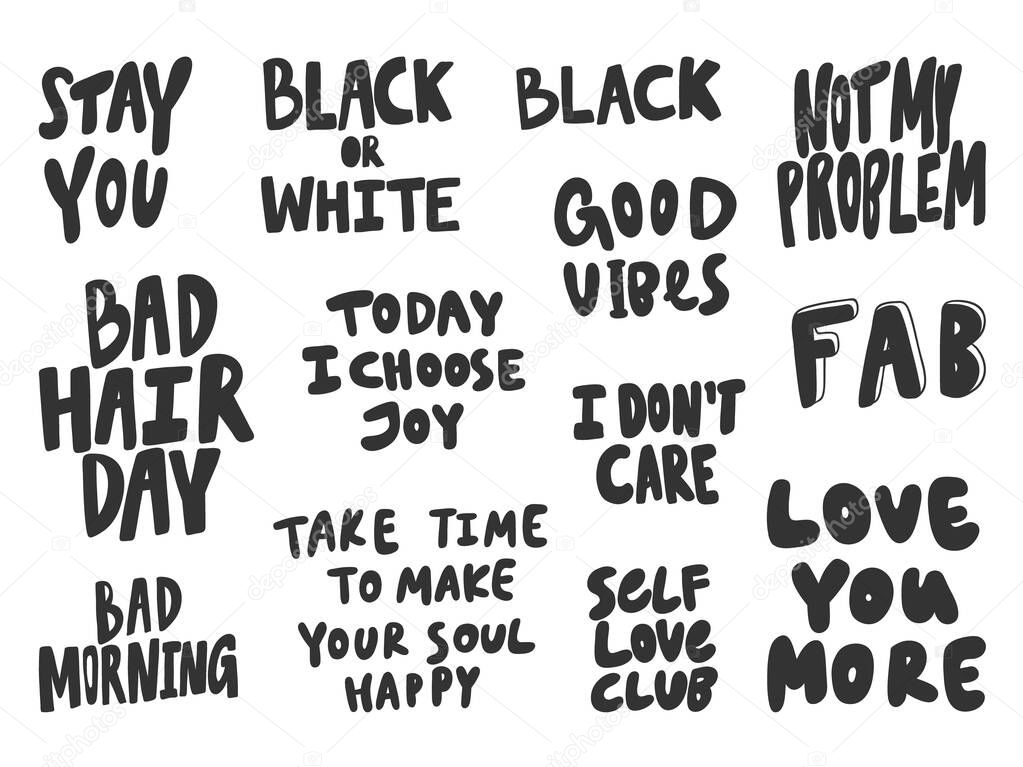 STAY
YOU
BLACK
OR
WHITE
BLACK
NOT MY
PROBLEM
GOOD
VIBeS
BAD
HAIR
DAY
TODAY
I CHOOSE
JOY
FAB
I DON'T
CARE
TAKE TIME
TO MAKE
YOUR SOUL
HAPPY
LOVE
YOU
MORE
BAD
MORNING
SeLF
LOVe
CLUB
depositphotos